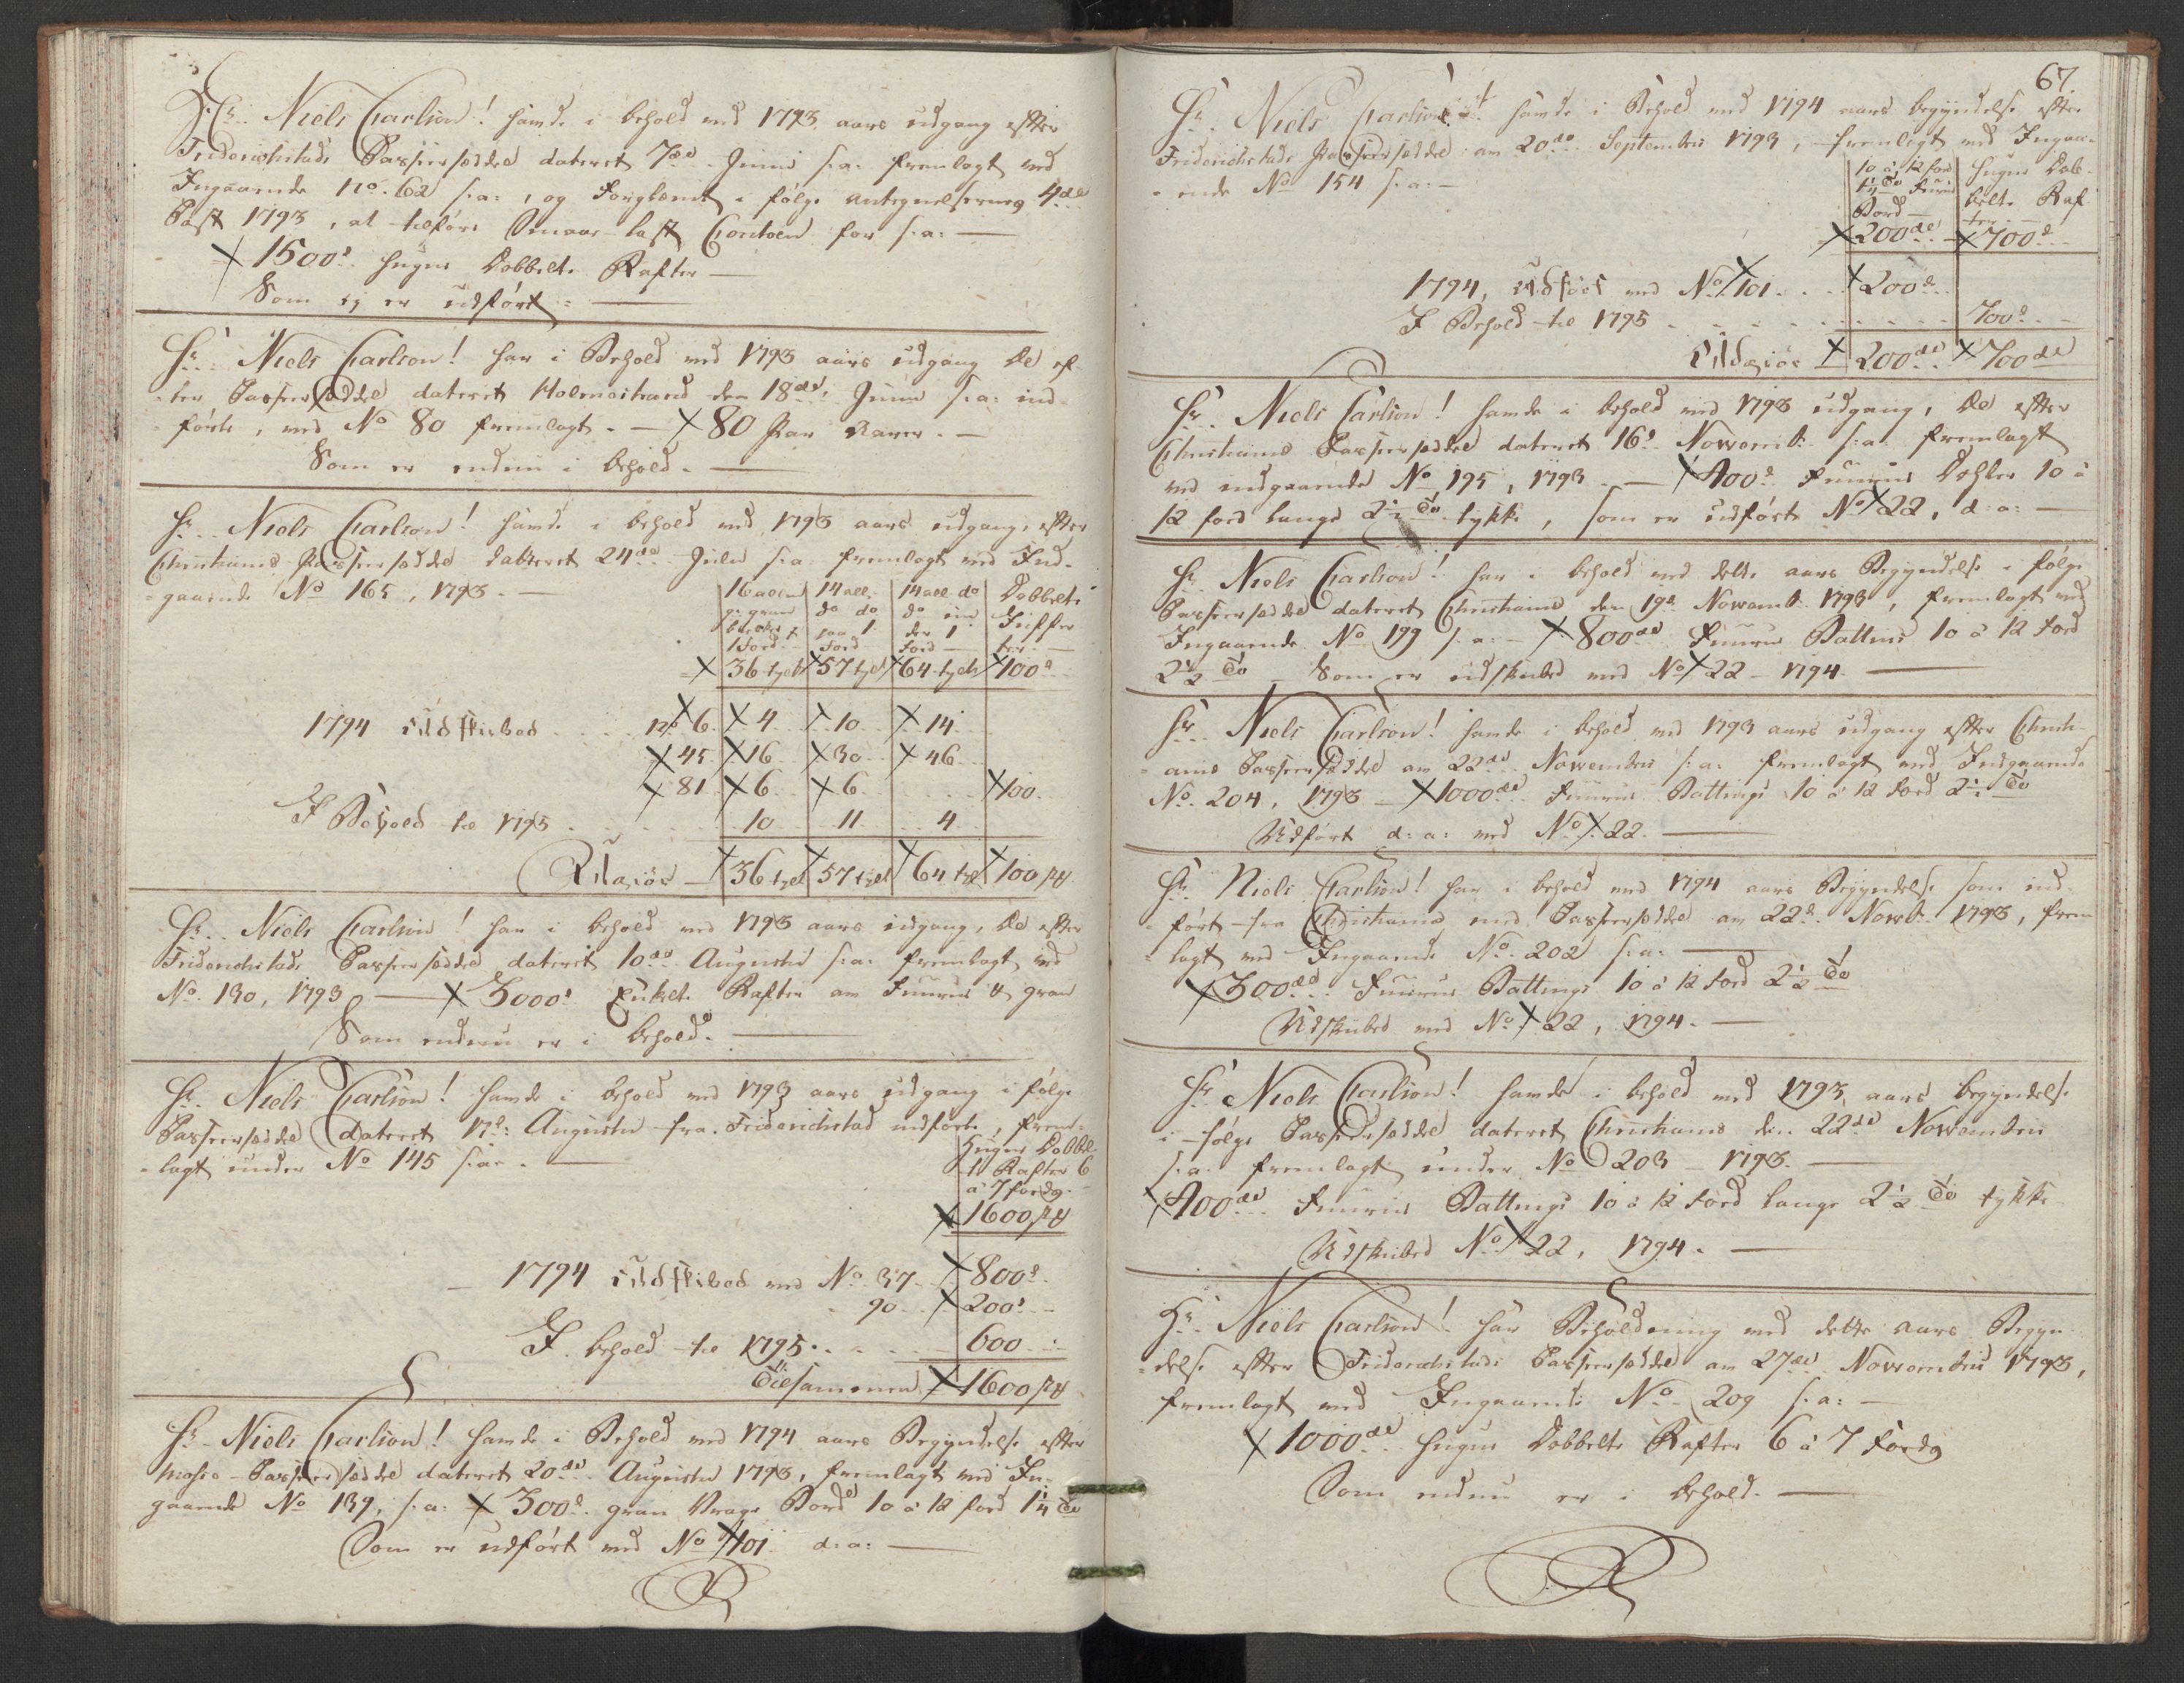 Hr. Niels Carlson! havde i behold med 1793 aars udgang efter
Friderichstads Passeersæddel dateret 7de Junii s: a: fremlagt ved
Ingaaende No. 62 s: a:, og i følge antegnelsernes 4de
Post 1793, at tilføre Smaae last Contoen for s: a: —
1500d. hugne Dobbelte Rafter —
Som ej er udført: —
Hr. Niels Carlson! har i Behold med 1793 aars udgang De ef-
ter Passeersæddel dateret Holmestrand den 18de Junii s: a: ind-
førte, med No 80 fremlagt. — 80 Par Aarer. —
Som er endnu i behold. —
Hr. Niels Carlson! havde i behold med 1793 aars udgang, efter
Christiania Passeersæddel dateret 24de Julii s: a. fremlagt ved Ind-
gaaende No 165, 1793. —
16 allen | 14 all. | 14 all. do | Dobbelte
gran | do do | do un- | Juffer
bielker | paa 1 | der 1 | ter
1 Fod | Fod | Fod —
36 tylt | 57 tylt | 64 tylt | 100d
1794 Udskibed No 6. 4 10 14
45. 16 30 46
81 6 6 100.
I Behold til 1795 10 11 4
Udgiør — 36 tylt 57 tylt 64 tylt 100 st
Hr. Niels Carlson! har i behold med 1793 aars udgang, De efter
Friderichstads Passeersæddel dateret 10de Augustii s: a: fremlagt ved
No. 130, 1793 — 3000d. Enkelte Rafter av Fuuru & gran
Som endnu er i behold. —
Hr. Niels Carlson! havde i behold med 1793 aars udgang i følge
Passeersæddel dateret 17d: Augustii fra Friderichstad indførte, frem-
lagt under No 145 s: a: —
Hugne Dobbel-
te Rafter 6
a 7 fords.
1600 st
1794 Udskibed med No. 37 800d.
90 200d.
I behold til 1795. 600
Tilsammen 1600 st
Hr. Niels Carlson! havde i Behold med 1794 aars Begyndelse efter
Mosse Passeersæddel dateret 20de Augustii 1793, fremlagt med In-
gaaende No 139, s: a: 300d. gran Vrage Bord 10 a 12 fod 1¼ To
Som er udført med No 101 d: a: —
67.
Hr. Niels Carlson! havde i Behold med 1794 aars begyndelse efter
Friderichstads Passeersæddel av 20de Septembr 1793, fremlagt med Ingaa-
ende No 154 s: a: —
10 à 12 fod | hugne Dob-
1¼ To Fuuru | belte Raf-
Bord — | ter. —
200de | 700d
1794, Udført med No 101 200d.
I Behold til 1795 700d.
Udgiør 200de 700de
Hr. Niels Carlson! havde i behold med 1793 udgang, De efter
Christiania Passeersæddel dateret 16d. Novemb. s: a: fremlagt
ved indgaaende No 195, 1793 — 400d. Fuurue Dehler 10 à
12 fod lange 2½ To tykke, som er udførte No 22, d: a: —
Hr. Niels Carlson! har i behold med dette aars Begyndelse i følge
Passeersæddel dateret Christiania den 19d. Novemb. 1793, fremlagt med
Ingaaende No 199 s: a: — 800de Fuurue Battins 10 à 12 fod
2½ To — Som er udskibed med No 22 — 1794. —
Hr. Niels Carlson! havde i behold med 1793 aars udgang efter Christi-
ania Passeersæddel av 22de Novembri s: a: fremlagt med Indgaaende
No. 204, 1793 — 1000de Fuurue Battings 10 à 12 fod 2½ To
Udført d: a: med No 22. —
Hr. Niels Carlson! har i behold med 1794 aars Begyndelse som ind-
ført fra Christiania med Passeersæddel av 22d. Novb. 1793, frem-
lagt med Ingaaende No. 202 s: a: —
300de Fuurue Battings 10 à 12 fod 2½ To
Udskibed med No 22, 1794. —
Hr. Niels Carlson! havde i behold med 1793 aars begyndelse
i følge Passeersæddel dateret Christiania den 22de Novembri
s: a: fremlagt under No 203 — 1793. —
400de Fuurue Battings 10 à 12 fod lange 2½ To tykke
Udskibed No 22, 1794. —
Hr. Niels Carlson! har Beholdning med dette aars Begyn-
delse efter Friderichstads Passeersæddel av 27de Novembri 1793,
fremlagt med Ingaaende No 209 s: a: —
1000de hugne Dobbelte Rafter 6 à 7 fords
Som endnu er i behold. —